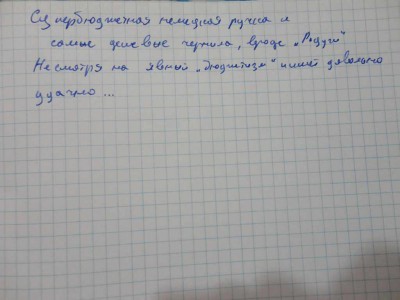 Супербюджетная немецкая ручка и
самые дешевые чернила, вроде „Радуги"
Несмотря на явный „бюджетизм" пишет довольно
удачно ...